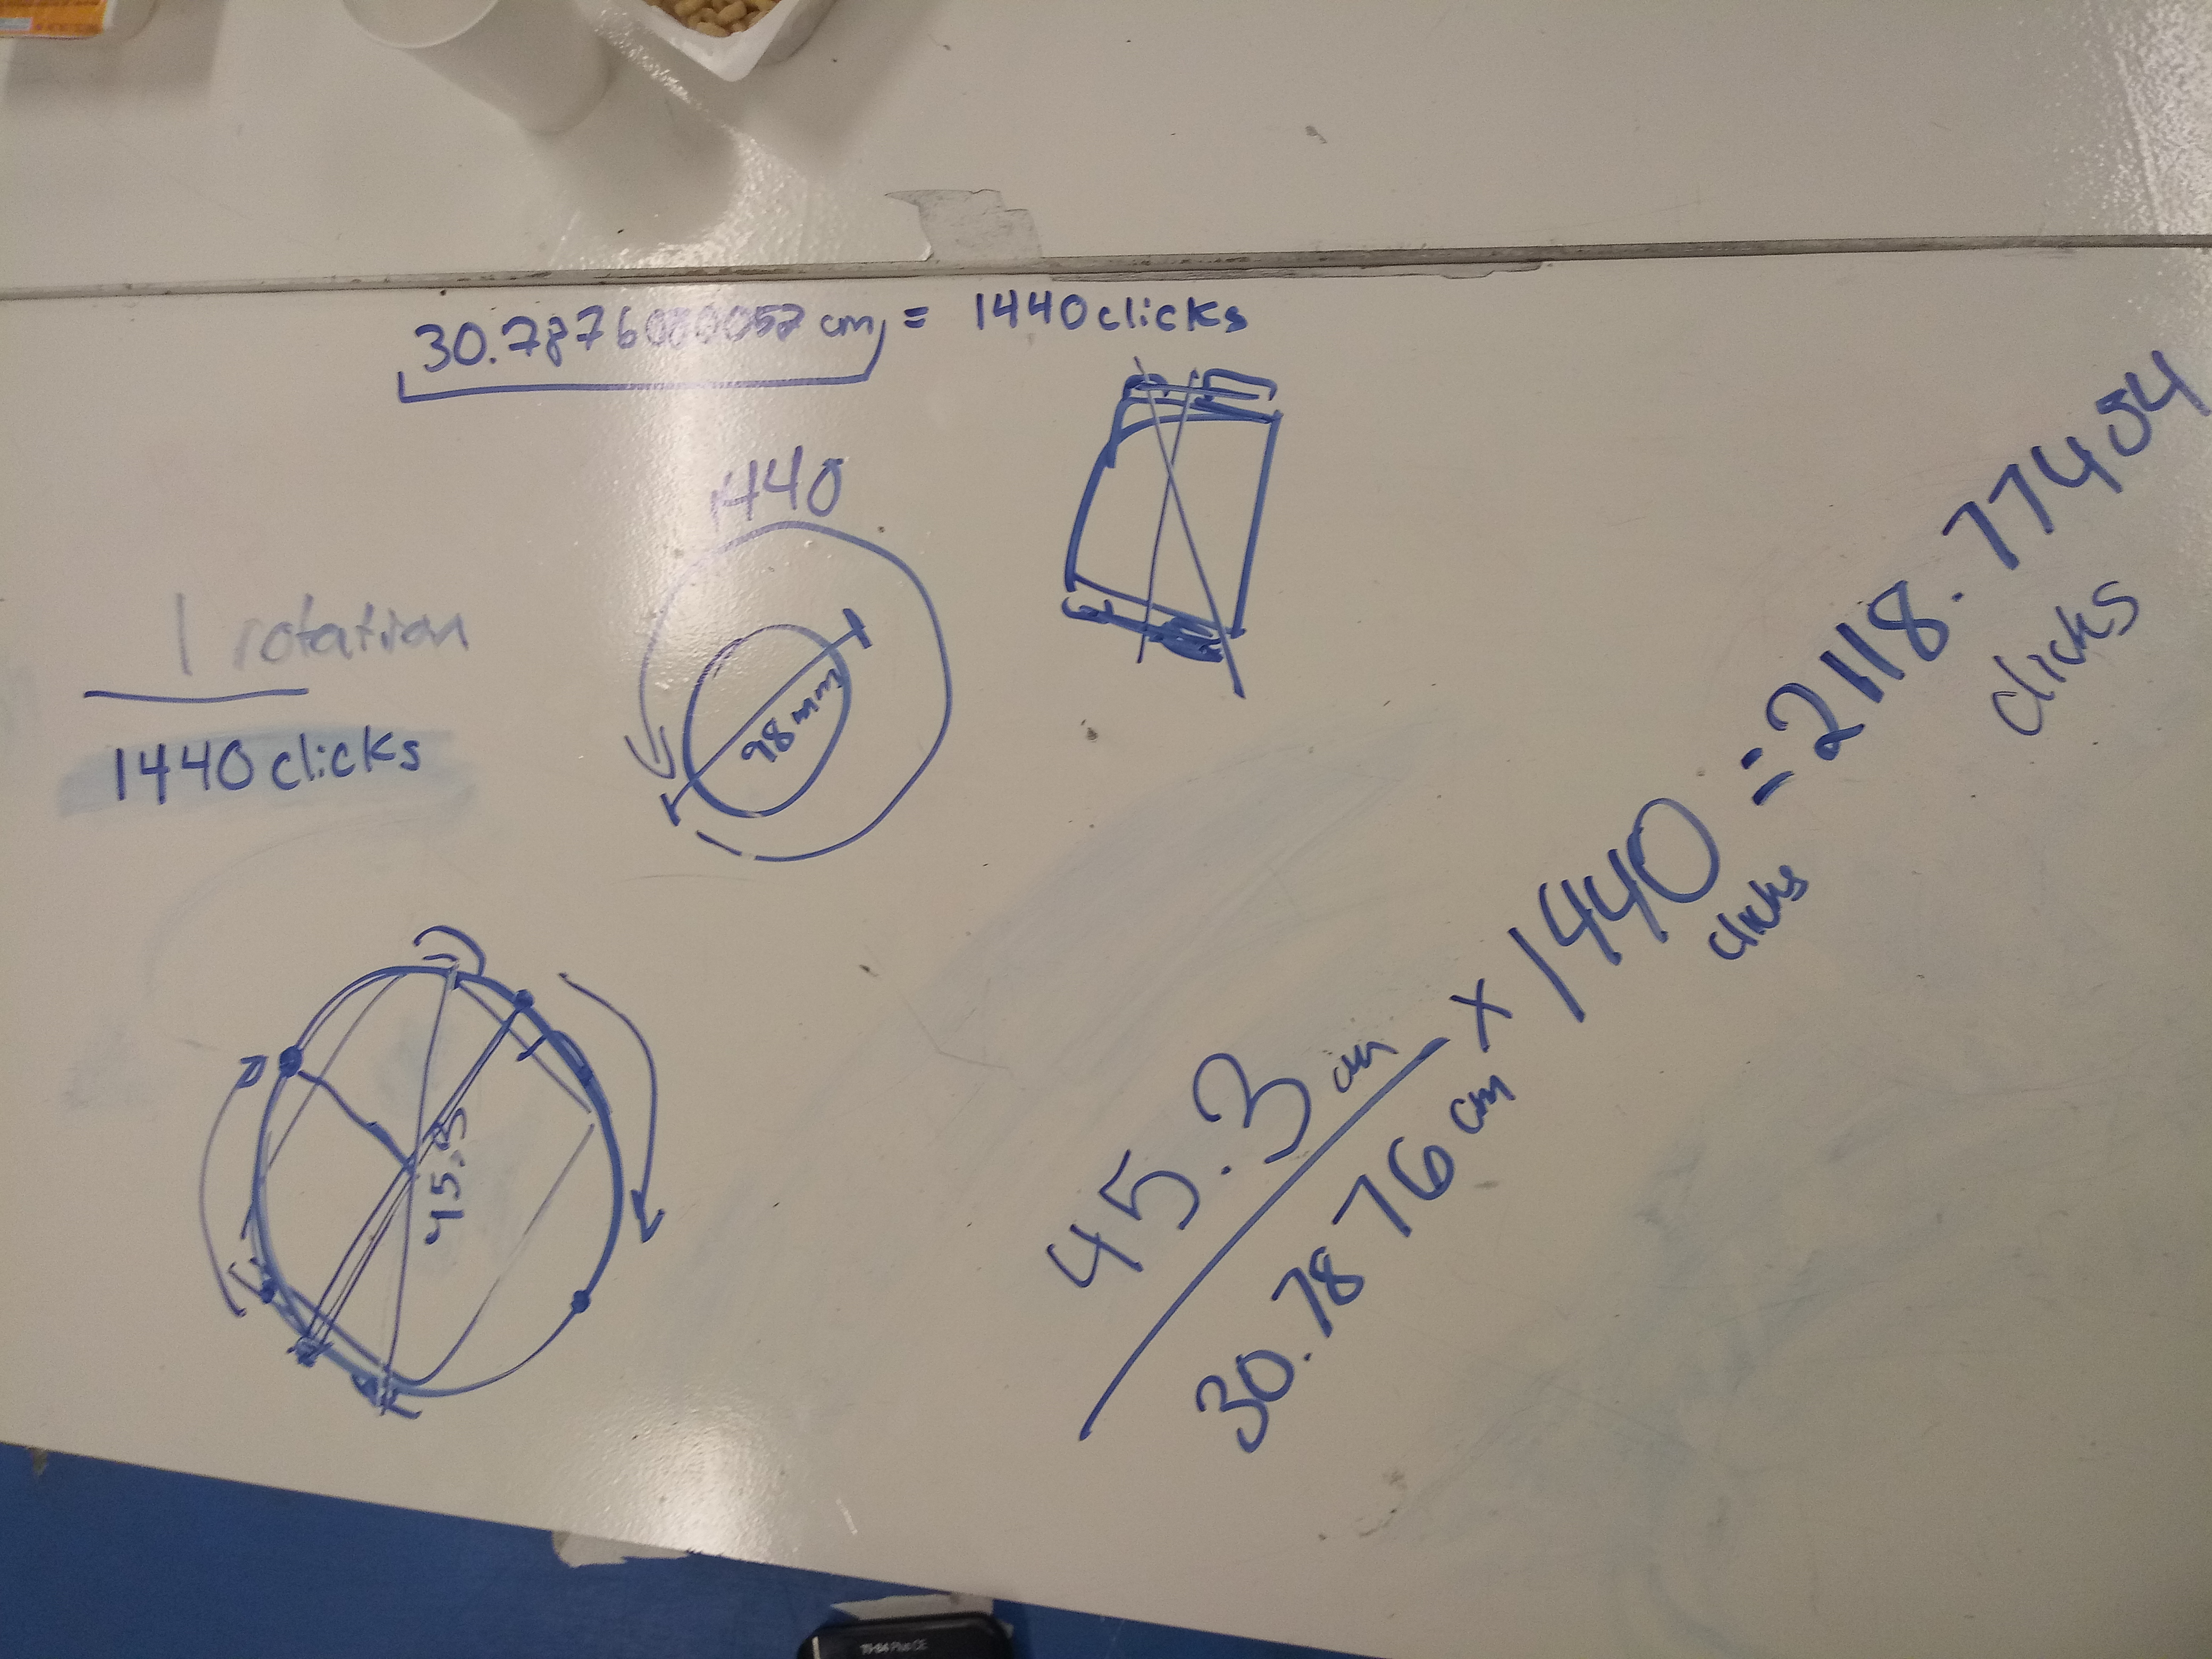 30.78760000052 cm = 1440 clicks
1 rotation
1440 clicks
1440
98mm
45.3
45.3 cm
30.7876 cm
x 1440 clicks
= 2118.77454 clicks